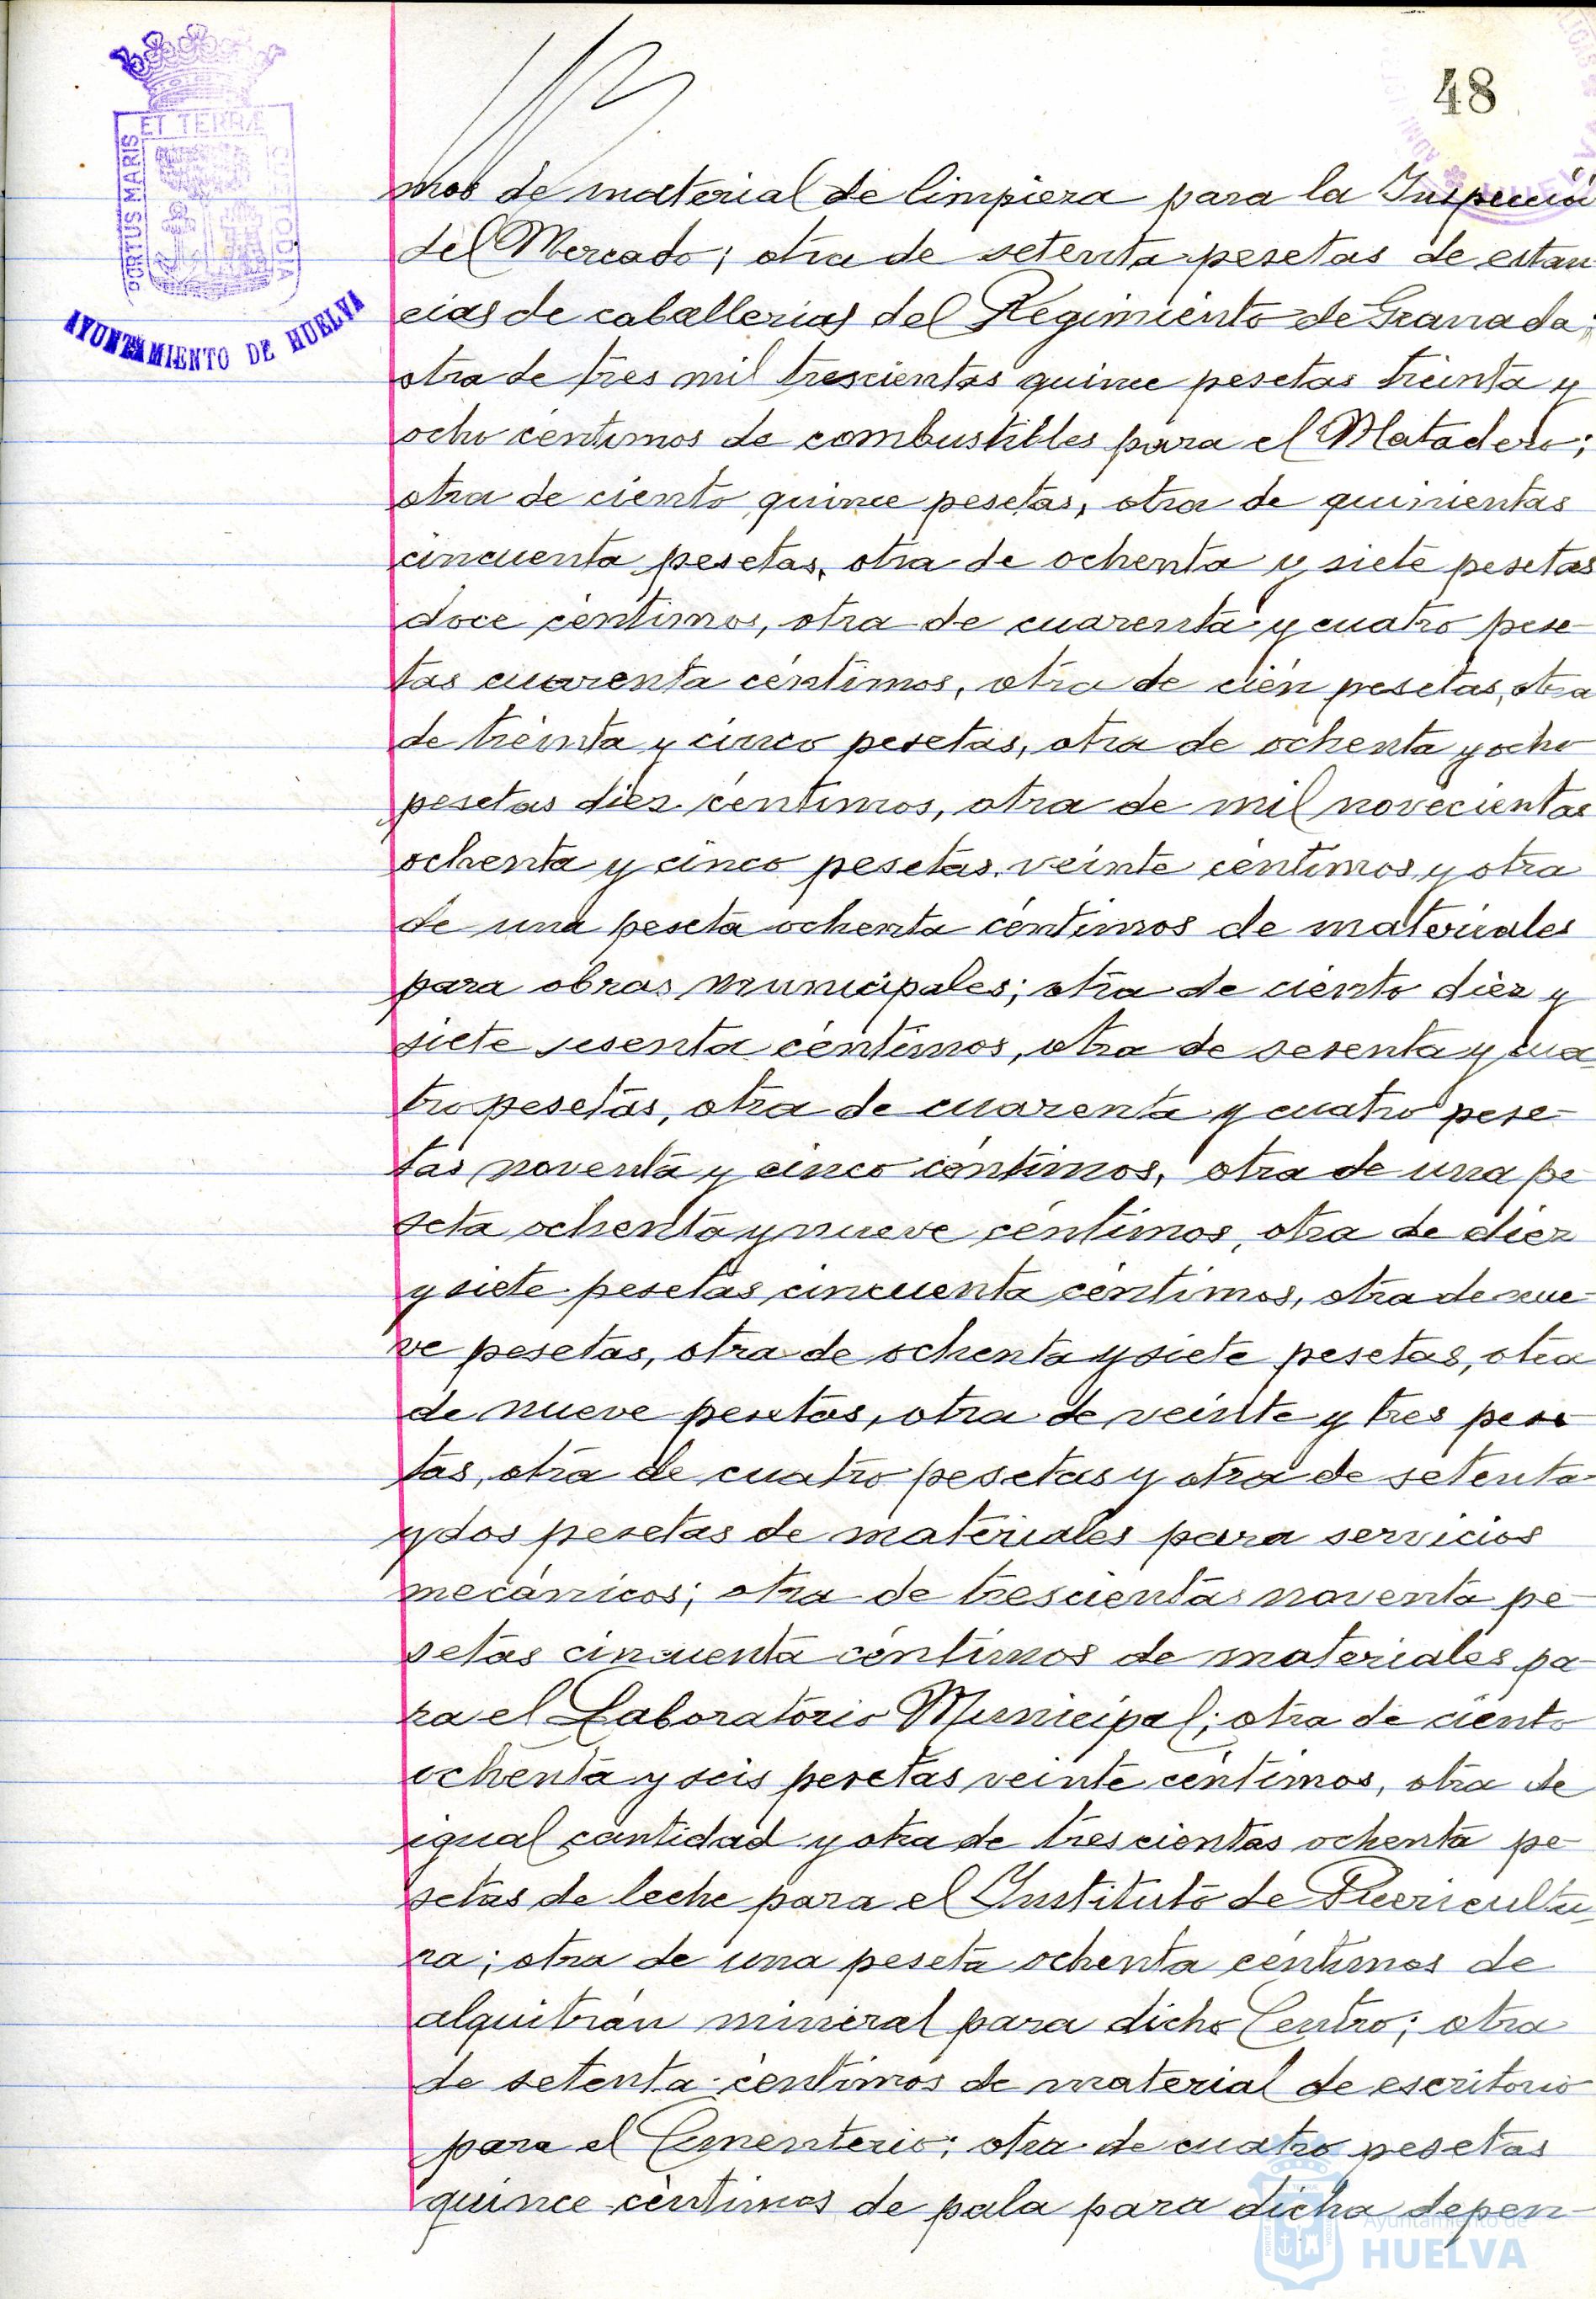 48
ET TERRÆ
PORTUS MARIS
CUSTODIA
AYUNTAMIENTO DE HUELVA
mos de material de limpieza para la Inspección
del Mercado; otra de setenta pesetas de estan
cias de caballerias del Regimiento de Granada;
otra de tres mil trescientas quince pesetas treinta y
ocho céntimos de combustibles para el Matadero;
otra de ciento quince pesetas, otra de quinientas
cincuenta pesetas, otra de ochenta y siete pesetas
doce céntimos, otra de cuarenta y cuatro pese-
tas cuarenta céntimos, otra de cien pesetas, otra
de treinta y cinco pesetas, otra de ochenta y ocho
pesetas diez céntimos, otra de mil novecientas
ochenta y cinco pesetas veinte céntimos y otra
de una peseta ochenta céntimos de materiales
para obras municipales; otra de ciento diez y
siete sesenta céntimos, otra de sesenta y cua-
tro pesetas, otra de cuarenta y cuatro pese-
tas noventa y cinco céntimos, otra de una pe-
seta ochenta y nueve céntimos, otra de diez
y siete pesetas cincuenta céntimos, otra de nue-
ve pesetas, otra de ochenta y siete pesetas, otra
de nueve pesetas, otra de veinte y tres pese-
tas, otra de cuatro pesetas y otra de setenta
y dos pesetas de materiales para servicios
mecánicos; otra de trescientas noventa pe-
setas cincuenta céntimos de materiales pa-
ra el Laboratorio Municipal; otra de ciento
ochenta y seis pesetas veinte céntimos, otra de
igual cantidad y otra de trescientas ochenta pe-
setas de leche para el Instituto de Puericultu-
ra; otra de una peseta ochenta céntimos de
alquitrán mineral para dicho Centro; otra
de setenta céntimos de material de escritorio
para el Cementerio; otra de cuatro pesetas
quince céntimos de pala para dicha depen-
Ayuntamiento de
HUELVA